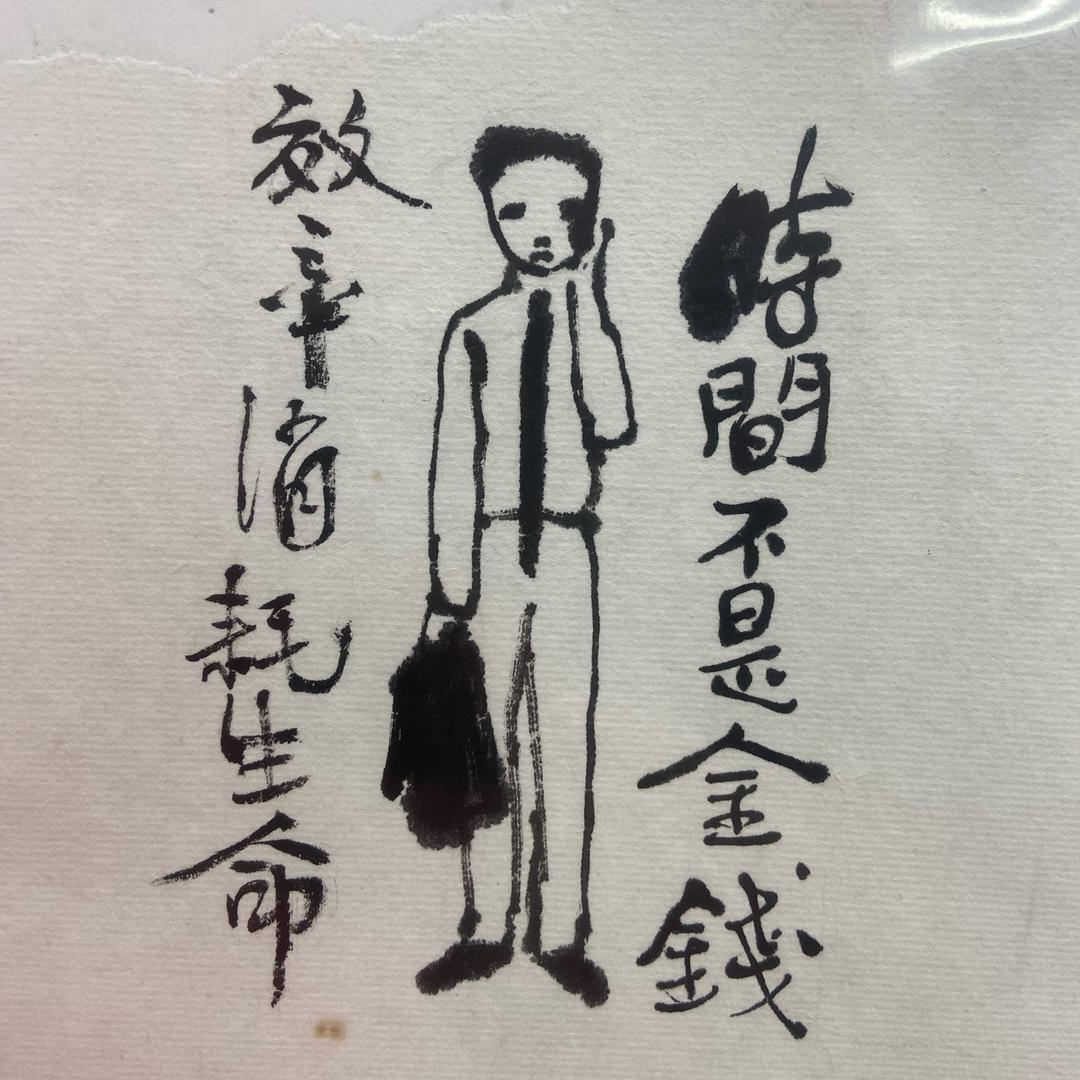 時間不是金錢
效率消耗生命